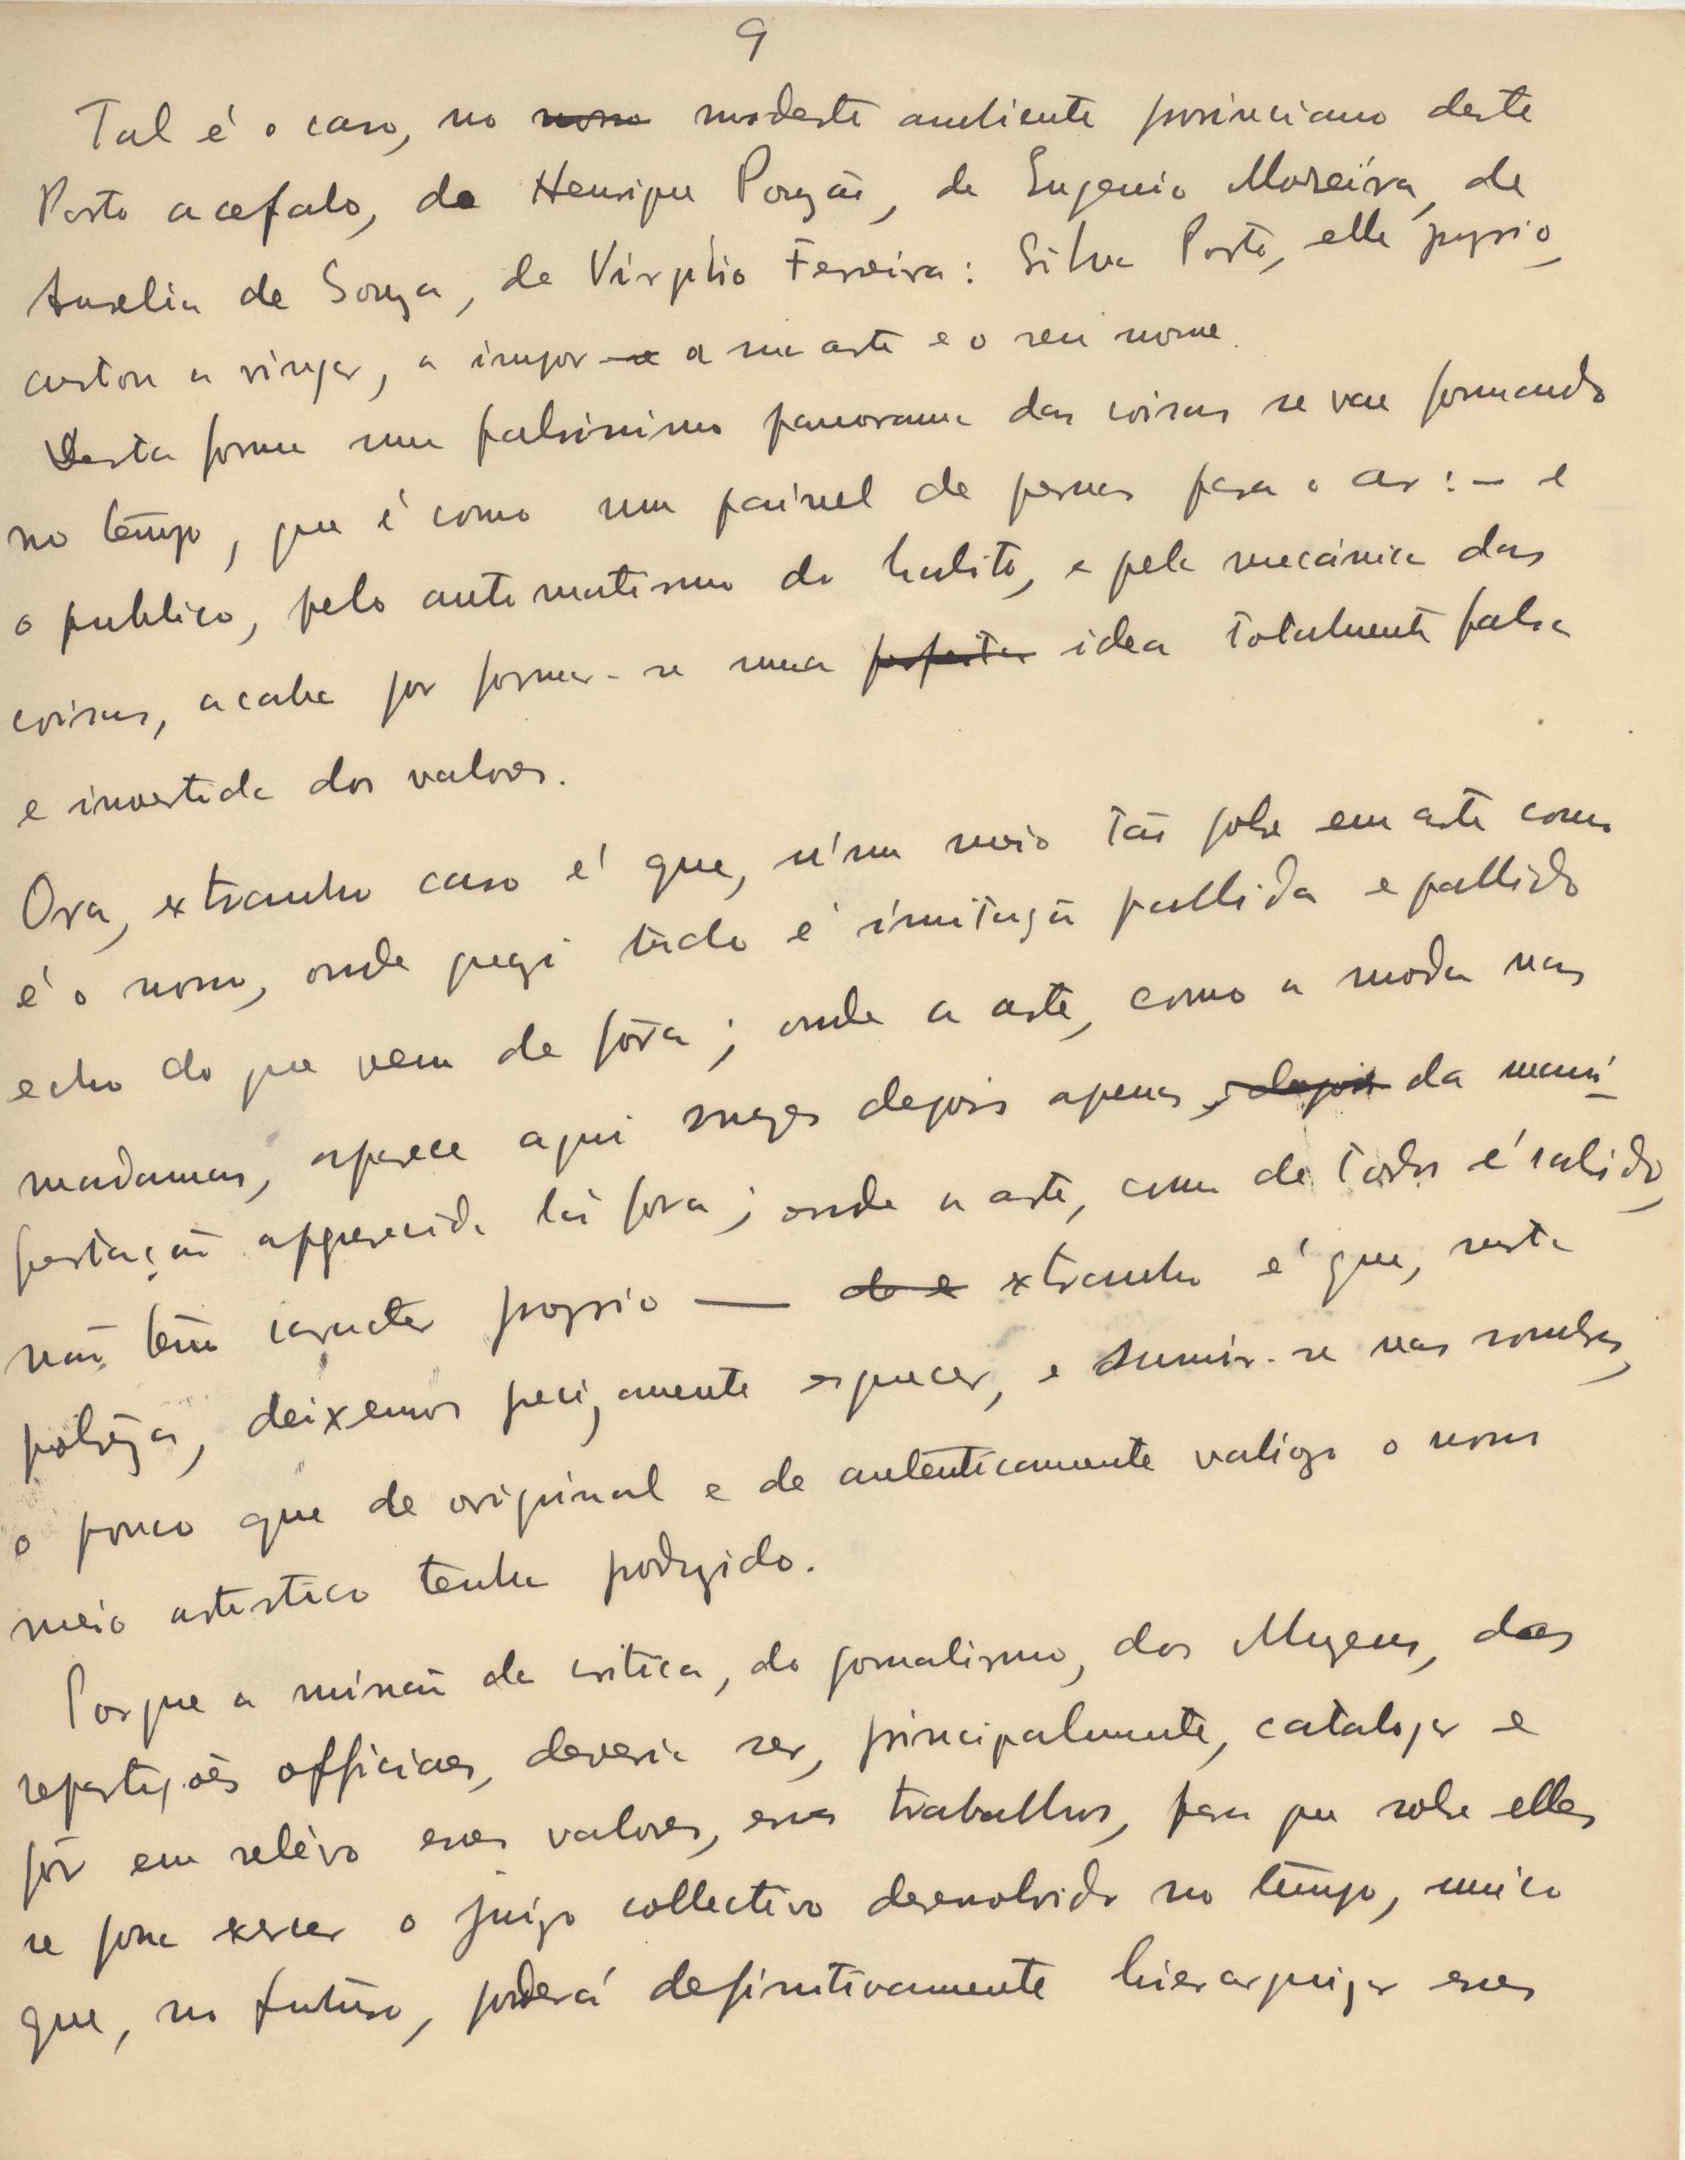 9
Tal é o caso, no nosso modesto ambiente provinciano deste
Porto acefalo, de Henrique Pouzão, de Eugenio Moreira, de
Aurelia de Souza, de Virgilio Ferreira: Silva Porto, elle proprio,
custou a vingar, a impor-se a sua arte e o seu nome.
Desta forma um falsissimo panorama das coisas se vae formando
no tempo, que é como um painel de pernas para o ar: — e
o publico, pelo automatismo do habito, e pela mecánica das
coisas, acaba por formar-se uma perfeita idea totalmente falsa
e invertida dos valores.
Ora, extranho caso é que, n'um meio tão pobre em arte como
é o nosso, onde quazi tudo é imitação pallida e pallido
echo do que vem de fóra; onde a arte, como a moda nas
madamas, aparece aqui mezes depois apenas, depois da mani-
festação apparecida lá fora; onde a arte, como de todos é sabido,
não tem caracter proprio — do e extranho é que, nesta
pobrêza, deixemos preci,amente esquecer, e sumir-se nas sombras,
o pouco que de original e de autênticamente valioso o nosso
meio artistico tenha produzido.
Porque a missão da critica, do jornalismo, dos Muzeus, das
repartições officiaes, deveria ser, principalmente, catalogar e
pôr em relêvo esses valores, esses trabalhos, para que sobre elles
se possa exercer o juizo collectivo desenvolvido no tempo, unico
que, no futuro, poderá definitivamente hierarquizar esses